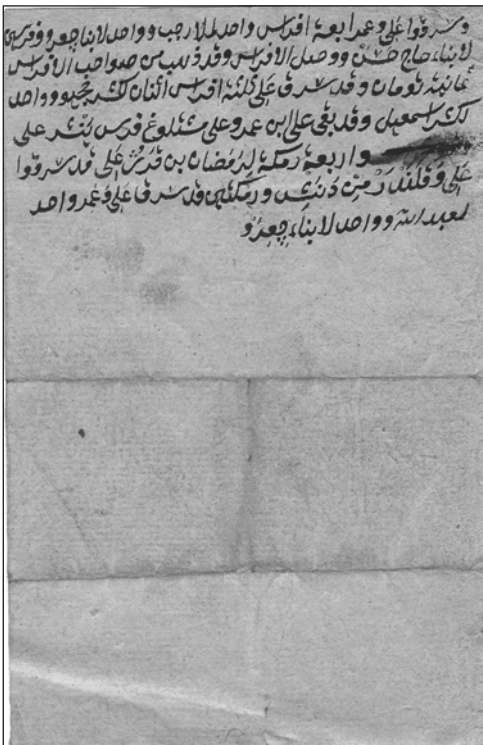 وسرقوا علی وعمر اربعة افراس واحد لملا رجب وواحد لابنا چعرو وفرسین
لابناء حاج حسن ووصل الافراس وقد ذهب من صواحب الافراس
ثمانیة تومان وقد سرق علی ثلثة افراس اثنان لکثر وواحد
لکثر اسمعیل وقد بقی علی ابن عمر وعلی فرس علی
واربعة رمکة لرمضان بن علی قد سرقوا
علی وقلندر من ورمکتین قد سرق علی وعمر واحد
لعبد الله وواحد لابناء چعرو